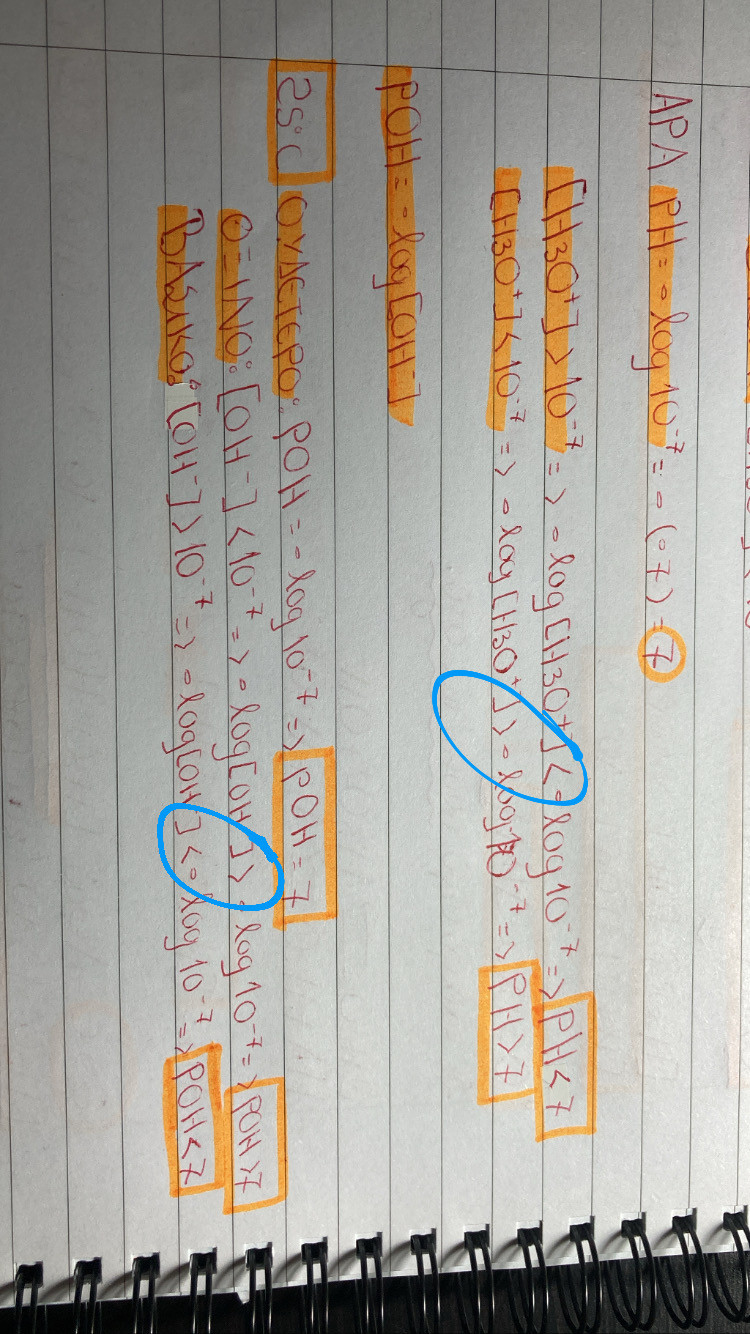 ΑΡΑ PH = -log 10⁻⁷ = -(-7) = 7
[H3O⁺] > 10⁻⁷ => -log[H3O⁺] < -log 10⁻⁷ => PH < 7
[H3O⁺] < 10⁻⁷ => -log[H3O⁺] > -log 10⁻⁷ => PH > 7
POH = -log[OH⁻]
25°C ΟΥΔΕΤΕΡΟ: POH = -log 10⁻⁷ => POH = 7
ΟΞΙΝΟ: [OH⁻] < 10⁻⁷ => -log[OH⁻] > -log 10⁻⁷ => POH > 7
ΒΑΣΙΚΟ: [OH⁻] > 10⁻⁷ => -log[OH⁻] < -log 10⁻⁷ => POH < 7